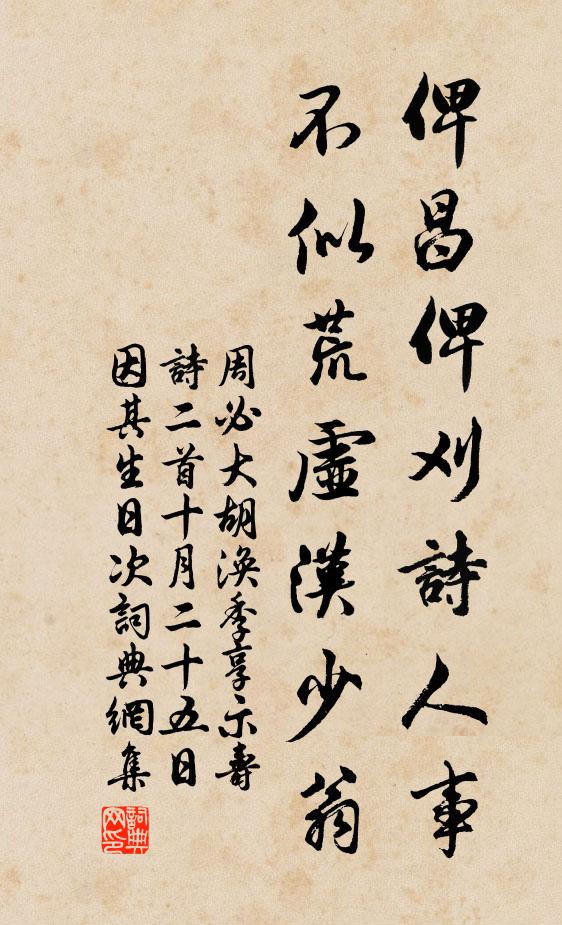 俾昌俾刈詩人事
不似荒虛漢少翁
周必大胡渙季享示壽
詩二首十月二十五日
因其生日次詞典網集
詞典网印